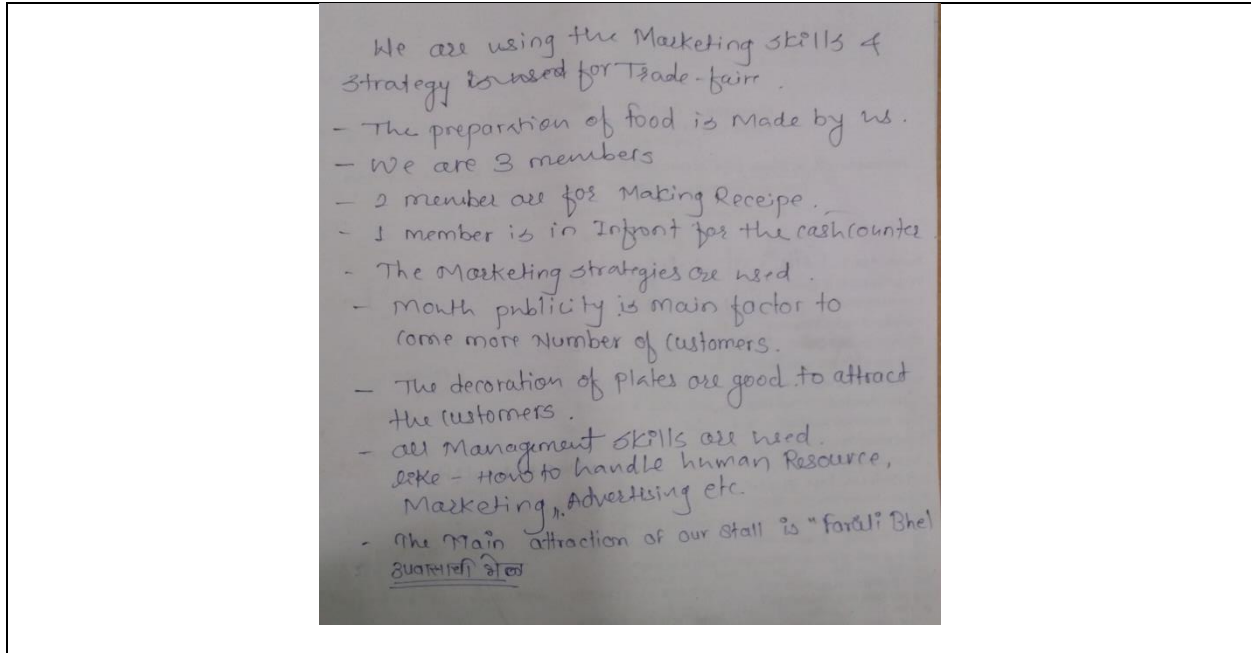 We are using the Marketing skills &
strategy is used for Trade-fair.
- The preparation of food is Made by us.
- We are 3 members
- 2 member are for Making Receipe.
- 1 member is in Infront for the cashcounter.
- The Marketing strategies are used.
- Mouth publicity is main factor to
come more Number of Customers.
- The decoration of plates are good to attract
the customers.
- all Management skills are used.
like - How to handle human Resource,
Marketing, Advertising etc.
- The Main attraction of our stall is "Farali Bhel
उपवासाची भेळ